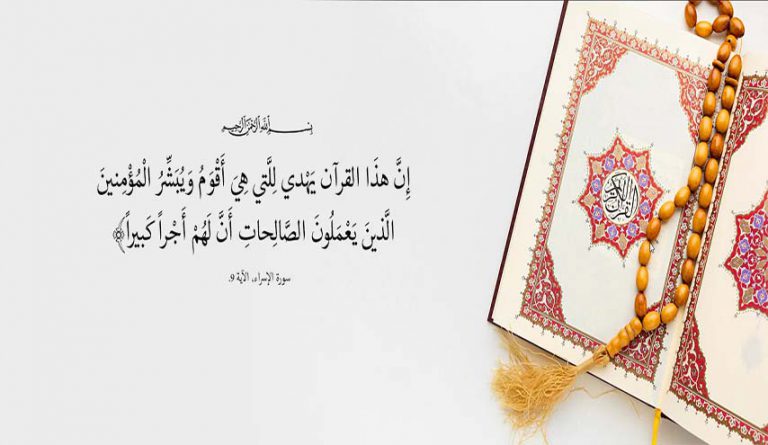 بسم الله الرحمن الرحيم
إِنَّ هذَا القرآن يَهْدي لِلَّتي هِيَ أَقْوَمُ وَيُبَشِّرُ الْمُؤْمِنينَ
الَّذينَ يَعْمَلُونَ الصَّالِحاتِ أَنَّ لَهُمْ أَجْراً كَبيراً﴾
سورة الإسراء، الآية 9.
القرآن الكريم